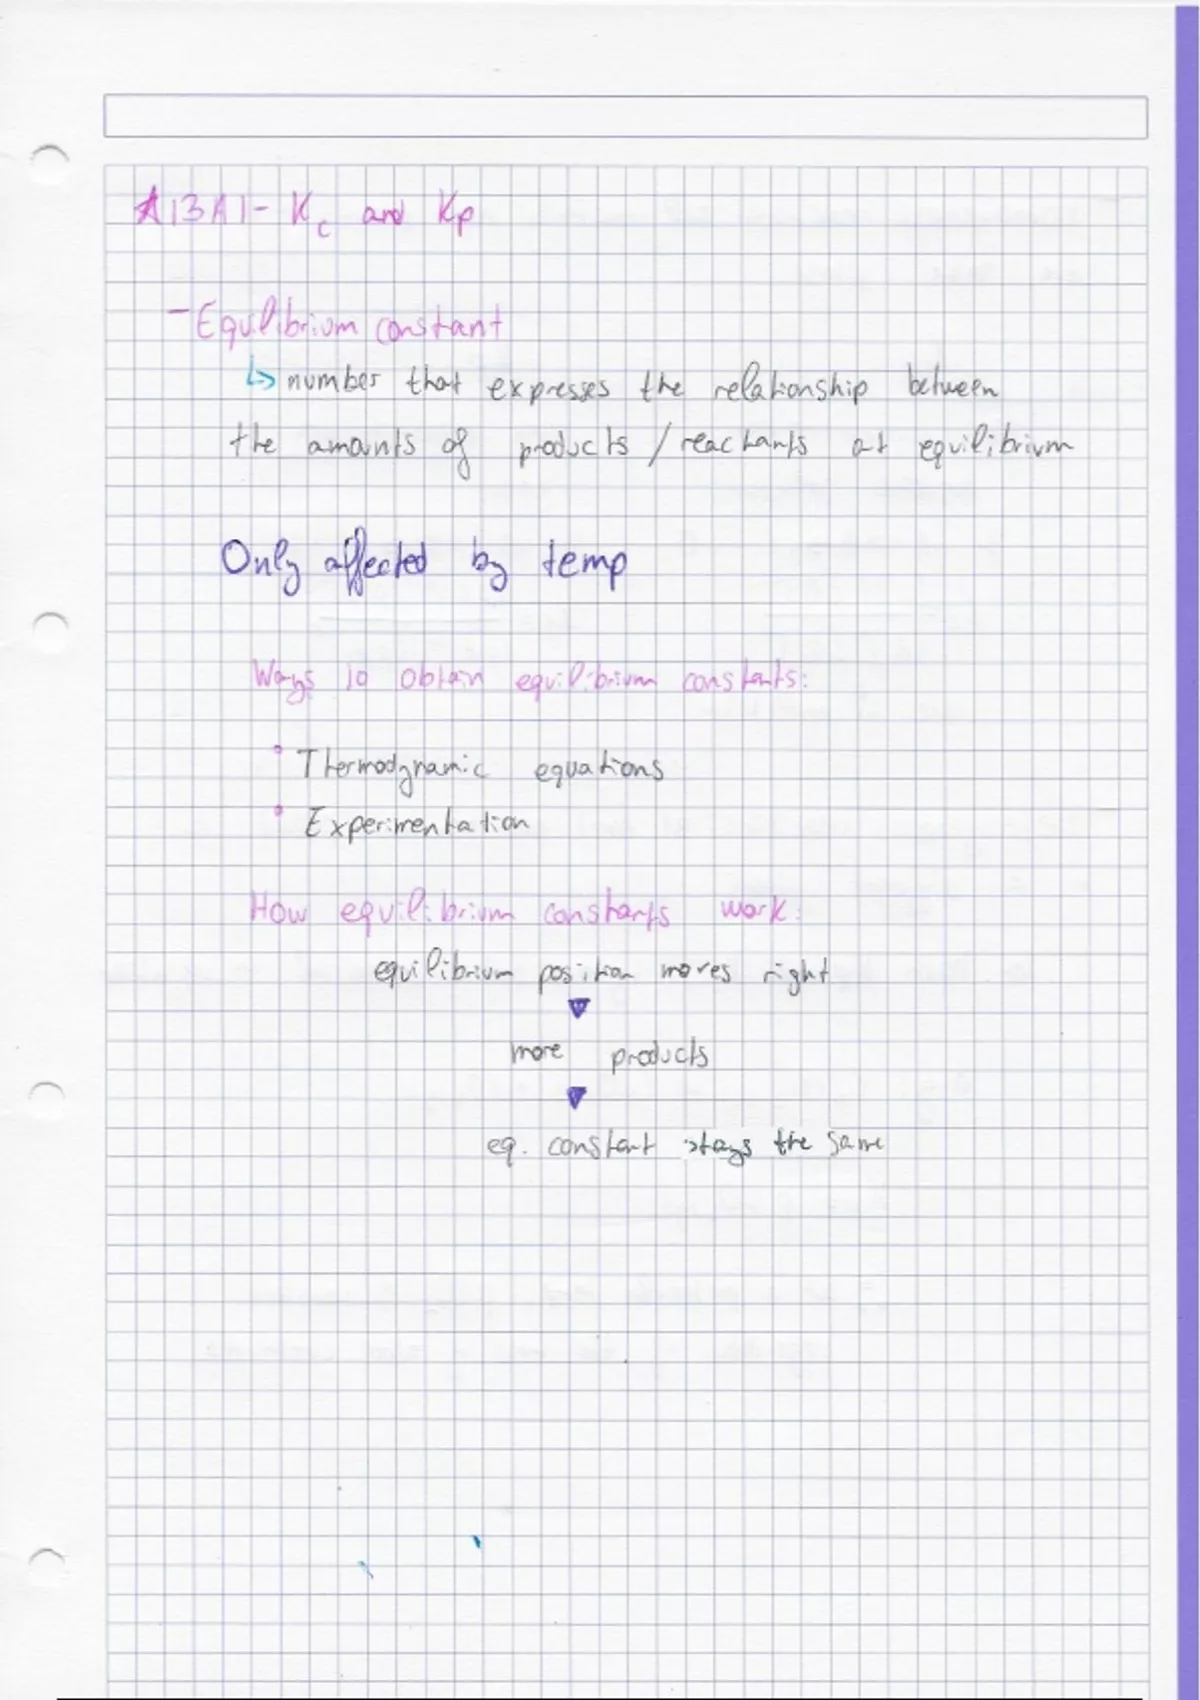 A13A1- Kc and Kp
- Equilibrium constant
↳ number that expresses the relationship between
the amounts of products / reactants at equilibrium
Only affected by temp
Ways to obtain equilibrium constants:
• Thermodynamic equations
• Experimentation
How equilibrium constants work:
equilibrium position moves right
▼
more products
▼
eq. constant stays the same